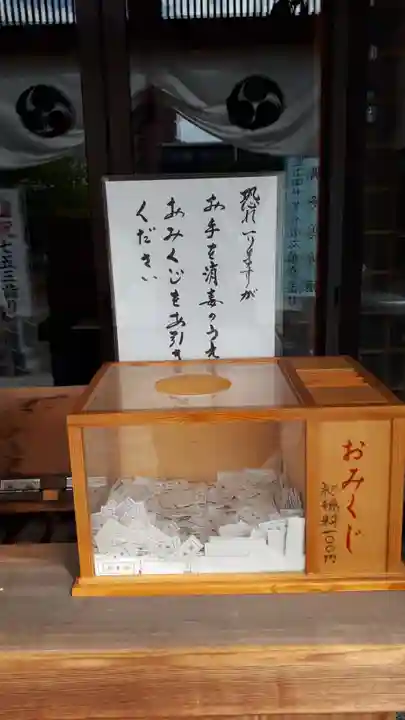 恐れ入りますが
お手を消毒のうえ
おみくじをお引き
ください
おみくじ
初穂料一〇〇円
七五三詣り